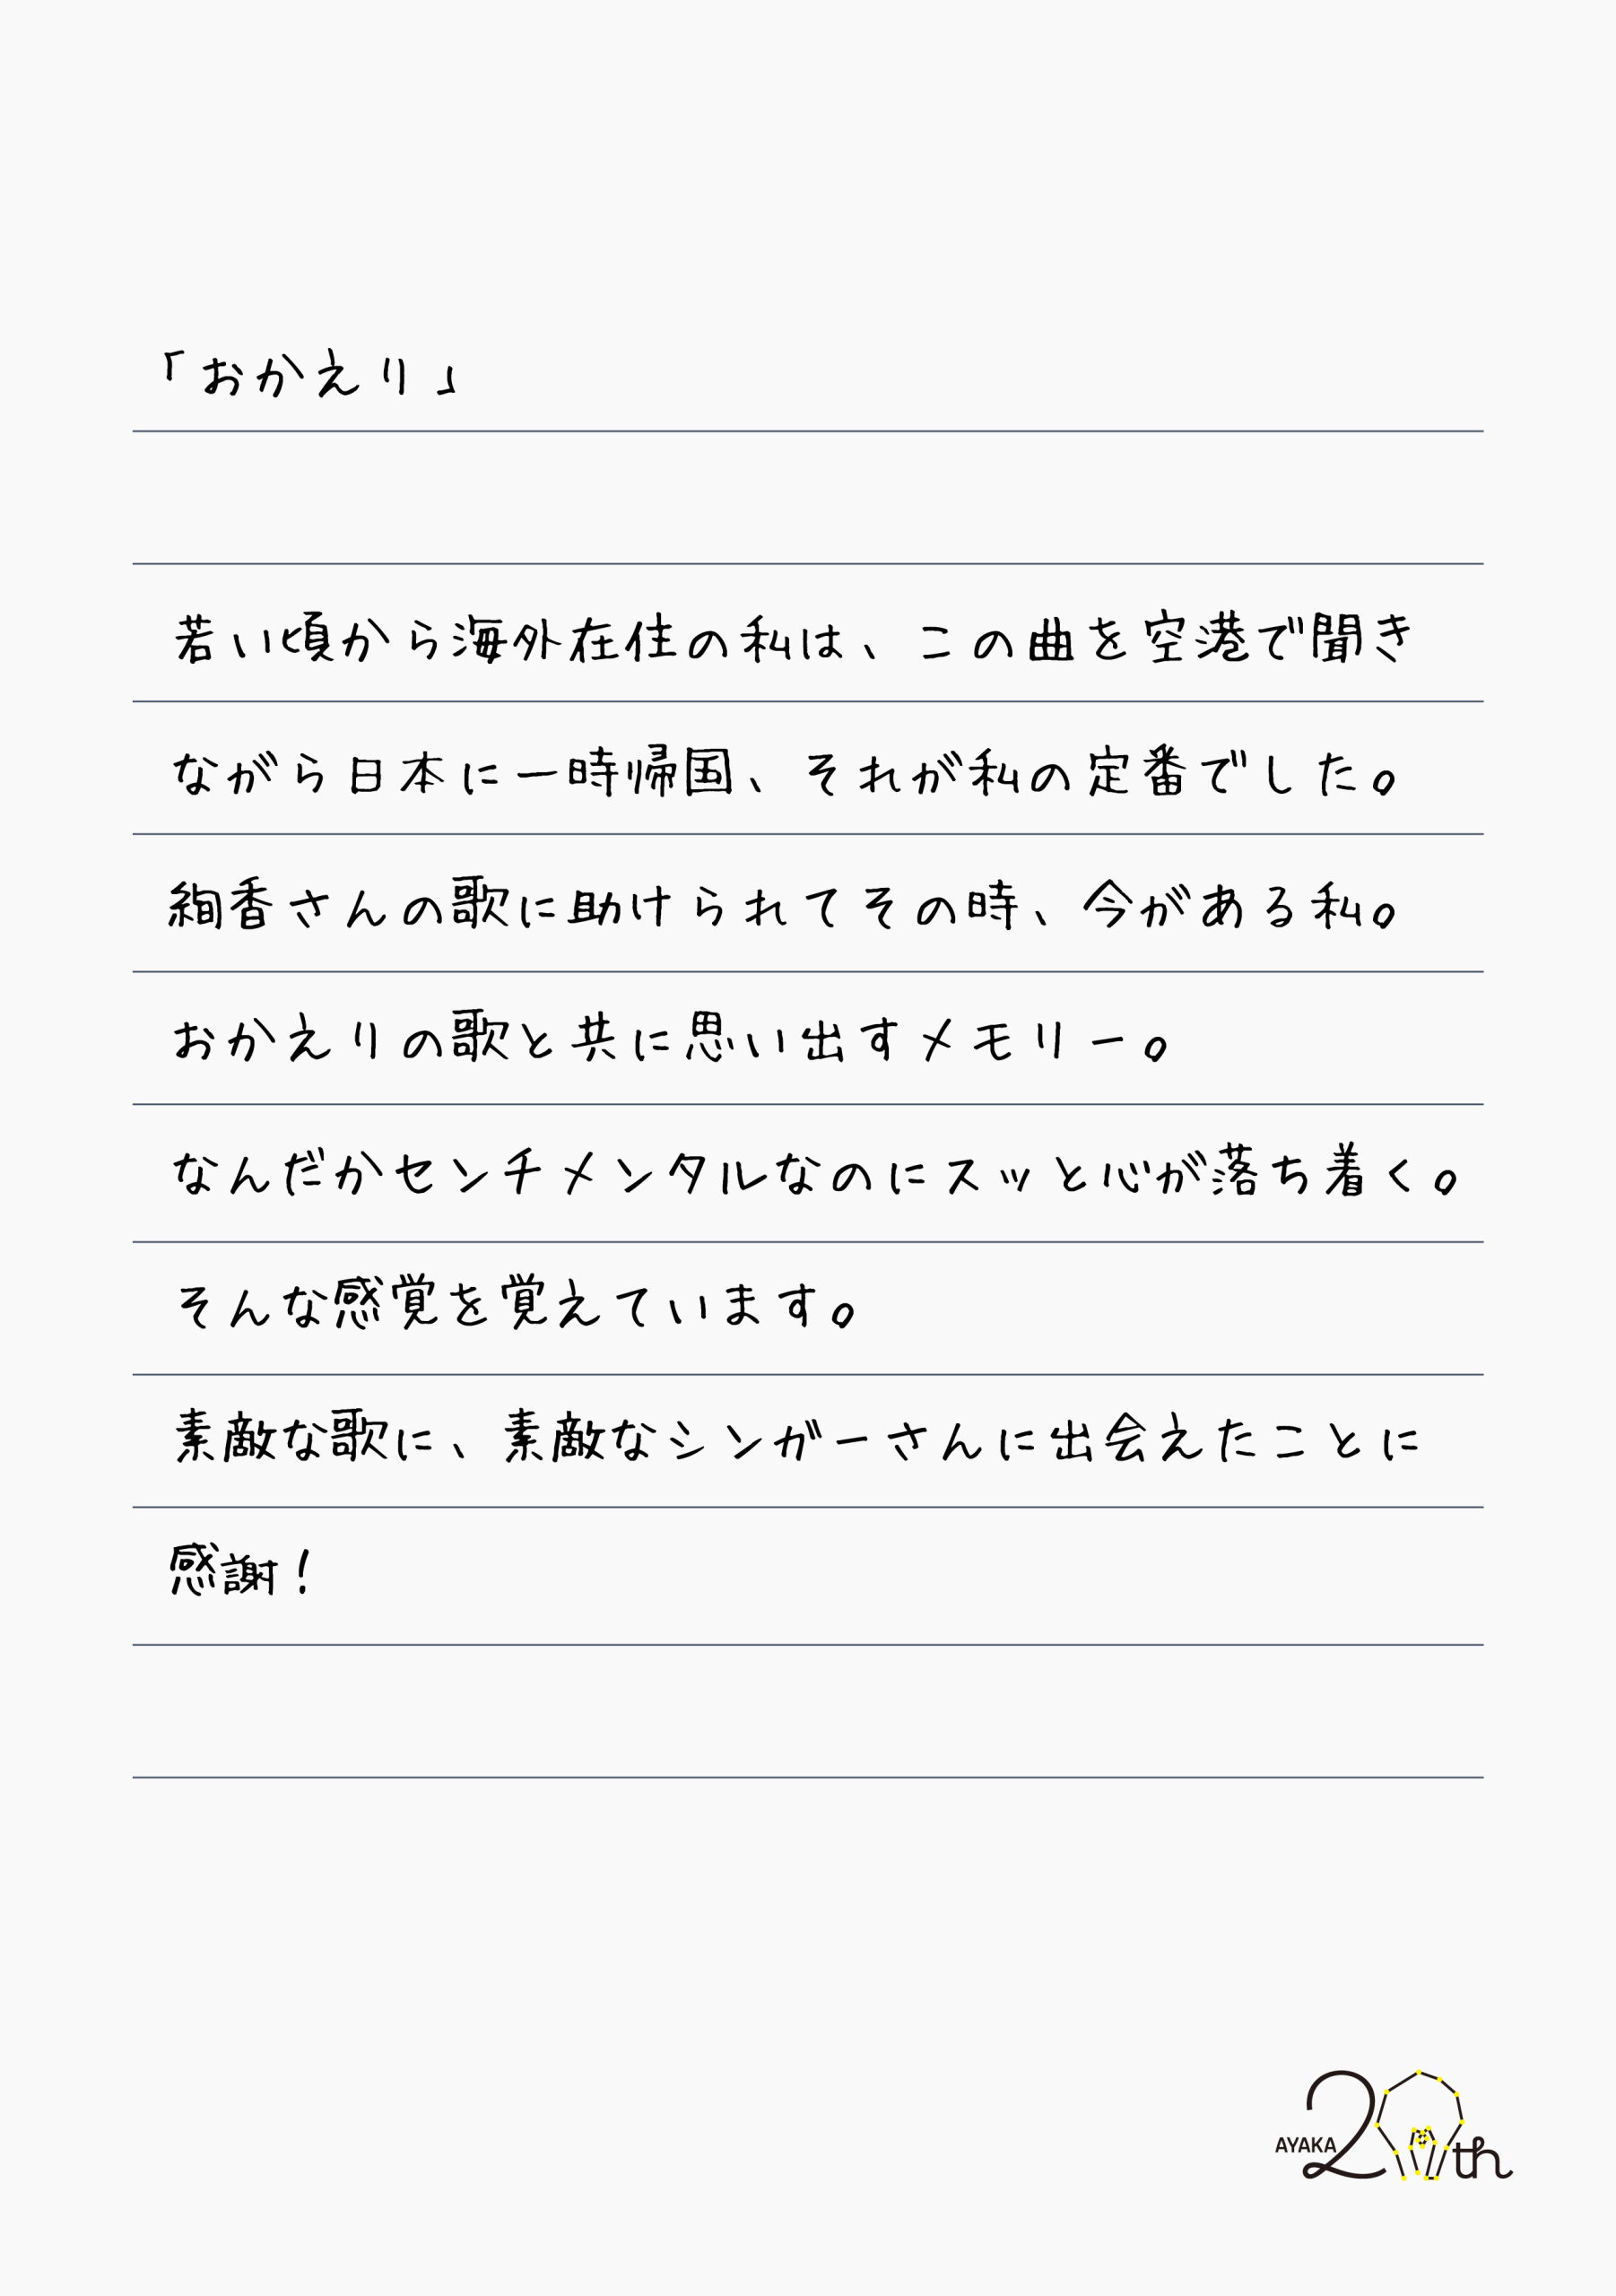 「おかえり」
若い頃から海外在住の私は、この曲を空港で聞き
ながら日本に一時帰国、それが私の定番でした。
絢香さんの歌に助けられてその時、今がある私。
おかえりの歌と共に思い出すメモリー。
なんだかセンチメンタルなのにスッと心が落ち着く。
そんな感覚を覚えています。
素敵な歌に、素敵なシンガーさんに出会えたことに
感謝！
AYAKA 20th